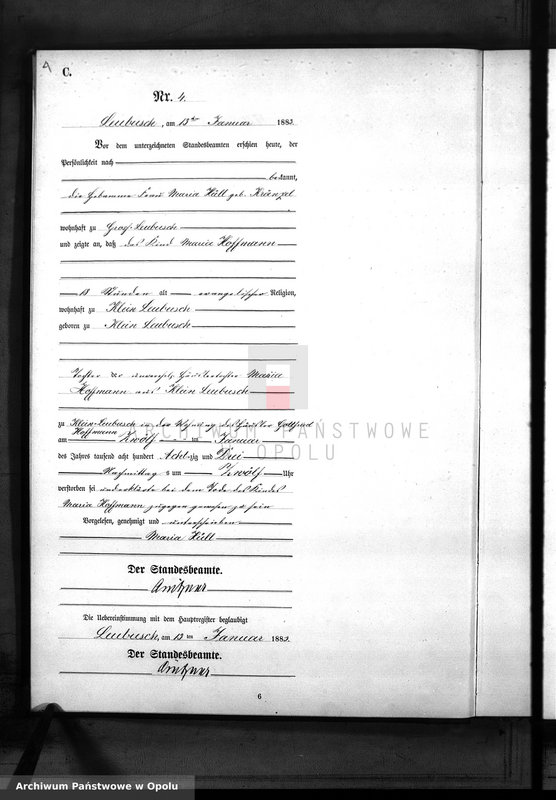 C.
Nr. 4.
Leubusch, am 13ten Januar 1883.
Vor dem unterzeichneten Standesbeamten erschien heute, der
Persönlichkeit nach
bekannt,
die Hebamme Frau Maria Hüll geb.
wohnhaft zu Groß Leubusch
und zeigte an, daß das Kind Maria Hoffmann
13 Stunden alt evangelischer Religion,
wohnhaft zu Klein Leubusch
geboren zu Klein Leubusch
Tochter der Maria
Hoffmann aus Klein Leubusch
zu Klein-Leubusch in der Wohnung des Häusler Gottfried
Hoffmann
am Zwölf ten Januar
des Jahres tausend acht hundert Achtzig und Drei
Nachmittag s um Zwölf Uhr
verstorben sei und erklärte bei dem Tode des Kindes
Maria Hoffmann zugegen gewesen zu sein
Vorgelesen, genehmigt und unterschrieben
Maria Hüll
Der Standesbeamte.
Die Uebereinstimmung mit dem Hauptregister beglaubigt
Leubusch, am 13 ten Januar 1883.
Der Standesbeamte.
6
ARCHIWUM PAŃSTWOWE
OPOLU
Archiwum Państwowe w Opolu